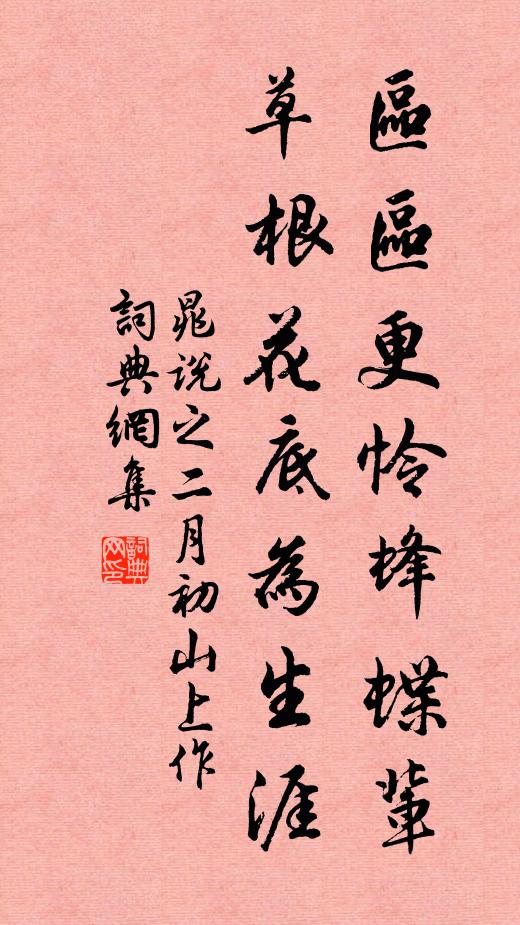 區區更怜蜂蝶輩
草根花底為生涯
晁説之二月初山上作
詞典網集
詞典
网印